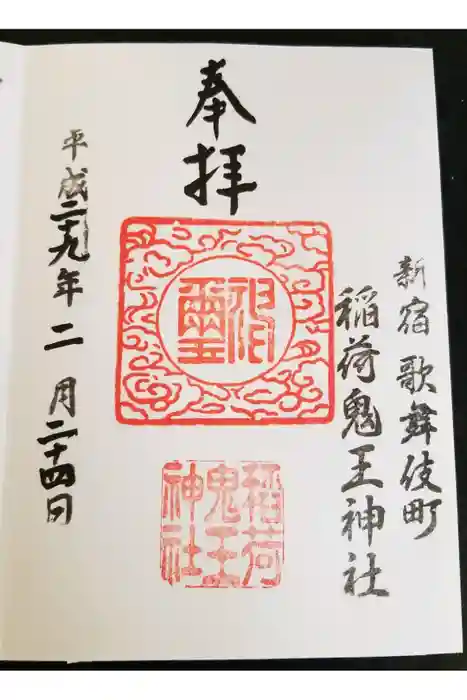 新宿歌舞伎町
稲荷鬼王神社
奉拝
稲荷
鬼王
神社
平成二十九年二月二十四日